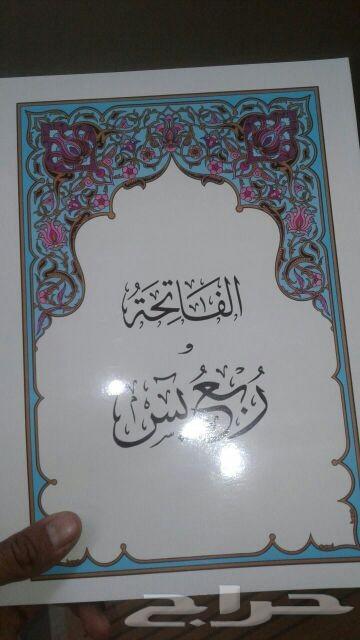 الفَاتِحَةُ
و
رُبْعُ يسٓ
حراج